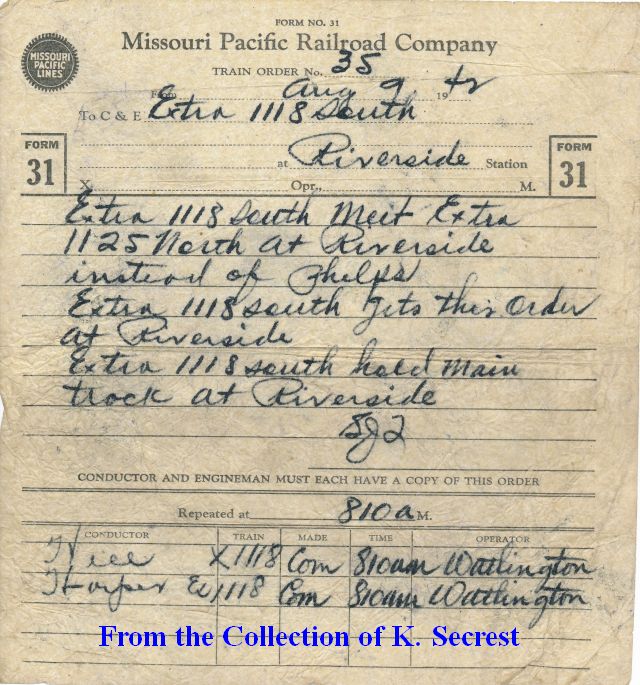 FORM NO. 31
MISSOURI PACIFIC LINES
Missouri Pacific Railroad Company
TRAIN ORDER No. 35
From Aug 9 1942
To C & E Extra 1118 South
at Riverside Station
FORM 31
FORM 31
X Opr., M.
Extra 1118 South Meet Extra
1125 North at Riverside
instead of Phelps
Extra 1118 south gets this order
at Riverside
Extra 1118 south hold main
track at Riverside
CONDUCTOR AND ENGINEMAN MUST EACH HAVE A COPY OF THIS ORDER
Repeated at 810a M.
CONDUCTOR TRAIN MADE TIME OPERATOR
X1118 Com 810am Watlington
Harper Ex1118 Com 810am Watlington
From the Collection of K. Secrest